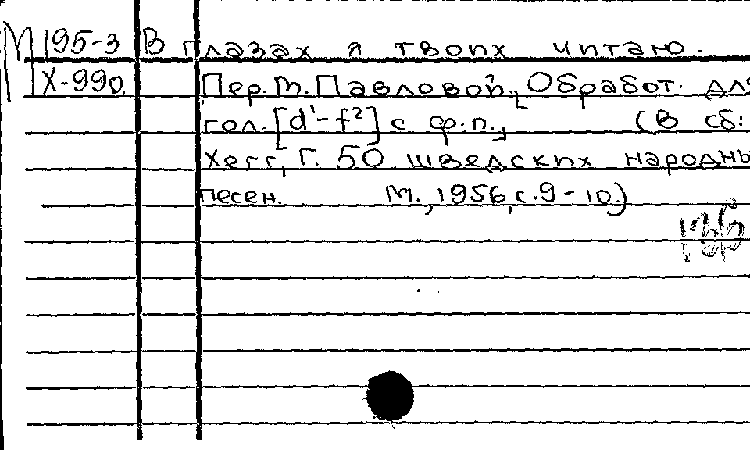 М 195-3 В глазах я твоих читаю.
Х-990 Пер. М. Павловой, Обработ. для
гол. [d¹-f²] с ф.п., (В сб:
Хегг, Г. 50 шведских народны
песен. М., 1956, с. 9-10.)